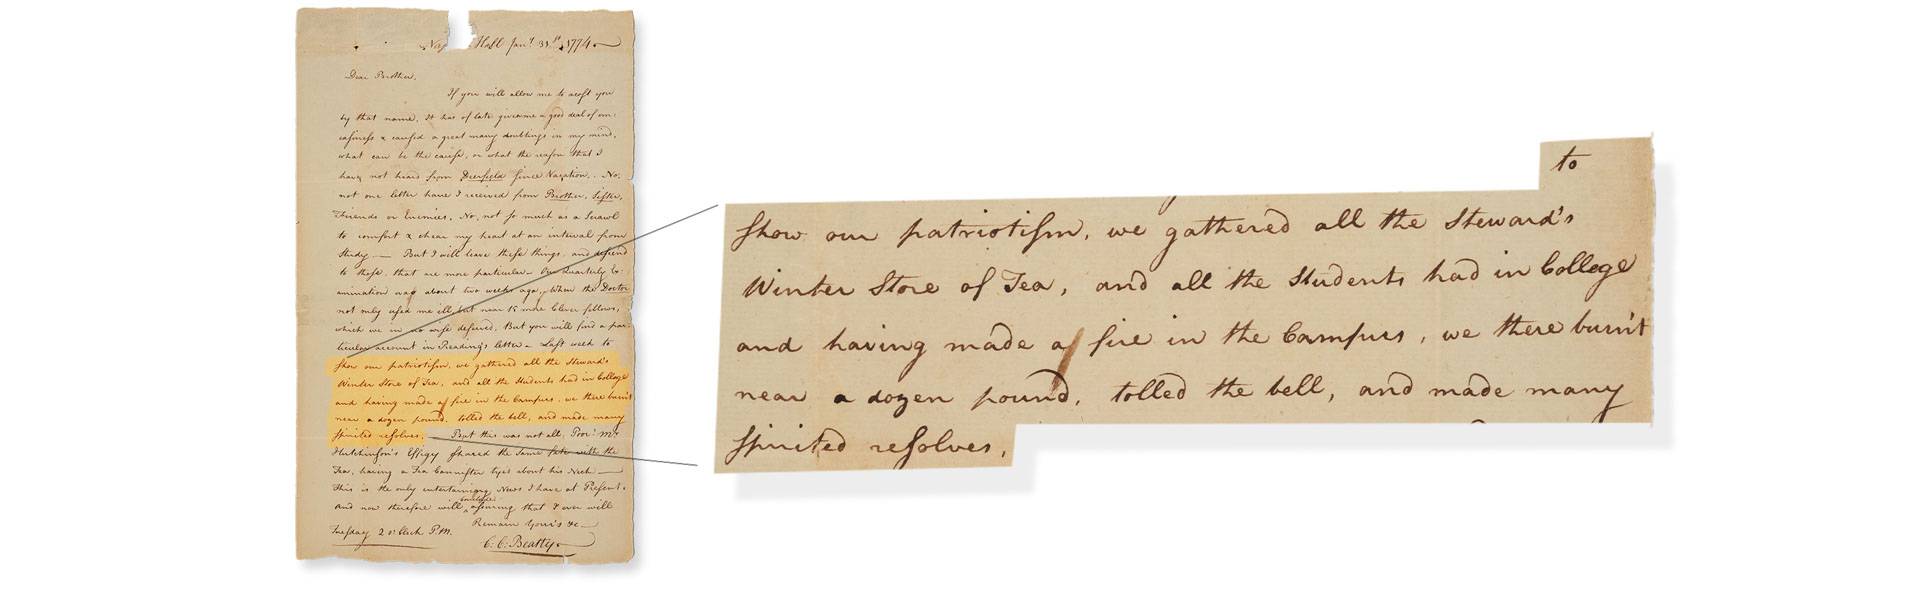 Hall Jany. 31st. 1774
Dear Brother,
If you will allow me to acost you
by that name. It has of late given me a good deal of un:
easiness & caused a great many doubtings in my mind,
what can be the cause, or what the reason that I
have not heard from Deerfield since Vacation. No,
not one letter have I received from Brother, Sister,
Friends or Enemies. No, not so much as a Scrawl
to comfort & chear my heart at an interval from
Study — But I will leave these things, and descend
to those, that are more particular — Our Quarterly Ex:
amination was about two weeks ago, When the Doctor
not only used me ill, but near 15 more Clever fellows,
which we in no wise deserved. But you will find a par:
ticular account in Reading's letter — Last week to
show our patriotism, we gathered all the Steward's
Winter Store of Tea, and all the Students had in College
and having made a fire in the Campus, we there burn't
near a dozen pound, tolled the bell, and made many
spirited resolves. But this was not all. Poor Mr.
Hutchinson's Effigy shared the same fate with the
Tea, having a Tea Cannister tyed about his Neck —
This is the only entertaining News I have at Present.
and now therefore will conclude assuring that I ever will
Remain Yours &c
Tuesday 2 o'Clock P.M.
C: C: Beatty
to
show our patriotism, we gathered all the Steward's
Winter Store of Tea, and all the Students had in College
and having made a fire in the Campus, we there burn't
near a dozen pound, tolled the bell, and made many
spirited resolves.